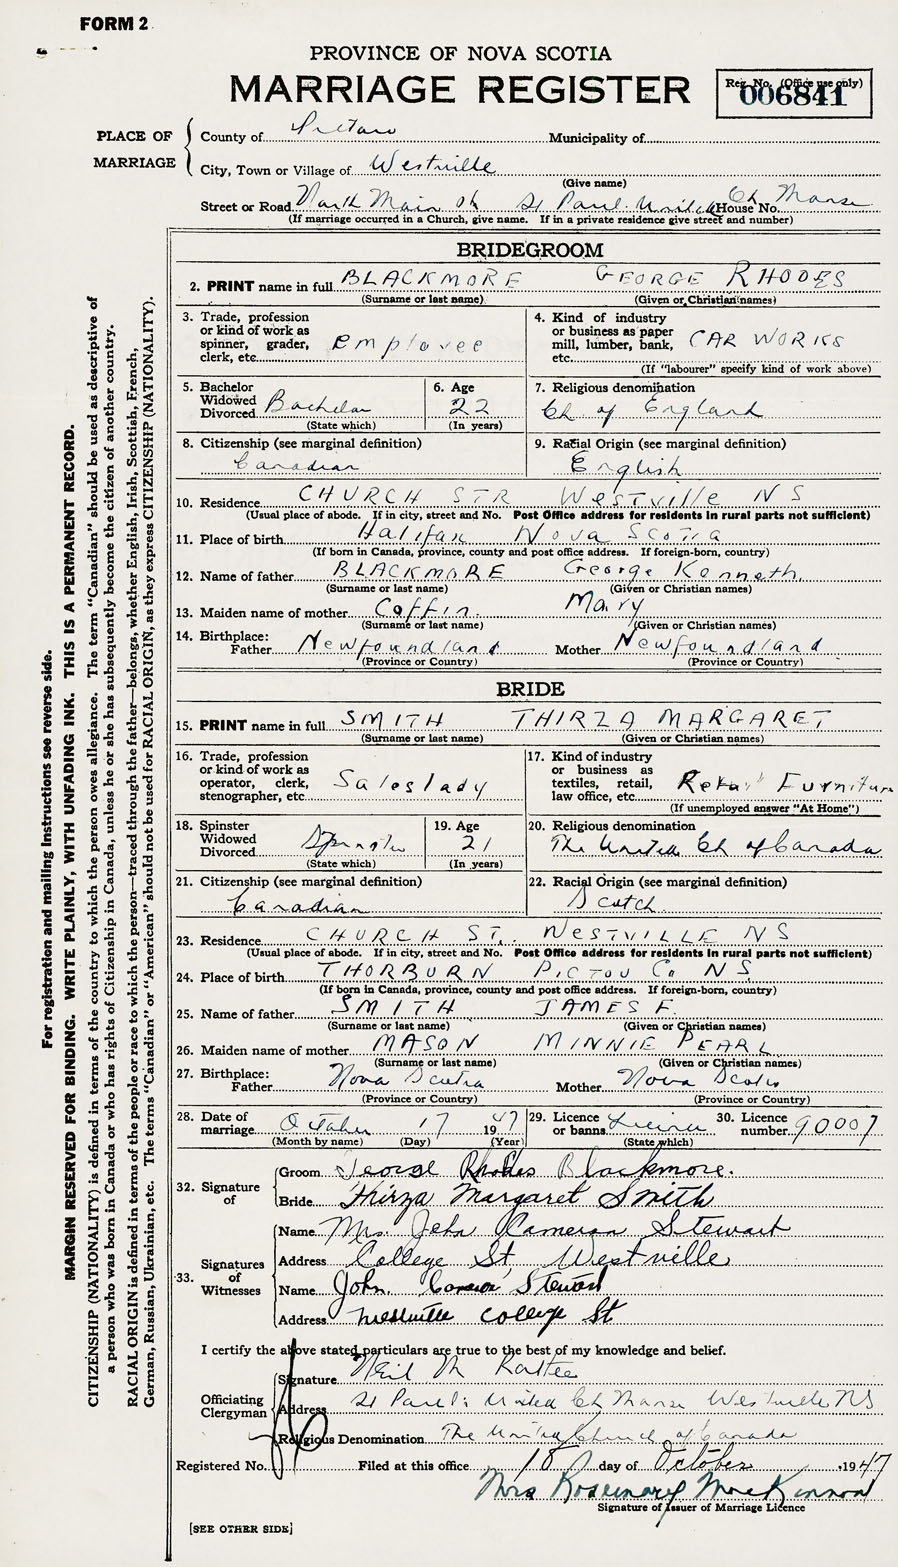 FORM 2
PROVINCE OF NOVA SCOTIA
MARRIAGE REGISTER
Reg. No. (Office use only)
006841
PLACE OF MARRIAGE
County of Pictou Municipality of
City, Town or Village of Westville
(Give name)
Street or Road North Main St St Paul United Ch Manse House No.
(If marriage occurred in a Church, give name. If in a private residence give street and number)
BRIDEGROOM
2. PRINT name in full BLACKMORE GEORGE RHODES
(Surname or last name) (Given or Christian names)
3. Trade, profession or kind of work as spinner, grader, clerk, etc. Employee
4. Kind of industry or business as paper mill, lumber, bank, etc. CAR WORKS
(If "labourer" specify kind of work above)
5. Bachelor Widowed Divorced Bachelor
(State which)
6. Age 22
(In years)
7. Religious denomination
Ch of England
8. Citizenship (see marginal definition)
Canadian
9. Racial Origin (see marginal definition)
English
10. Residence CHURCH STR WESTVILLE NS
(Usual place of abode. If in city, street and No. Post Office address for residents in rural parts not sufficient)
11. Place of birth Halifax Nova Scotia
(If born in Canada, province, county and post office address. If foreign-born, country)
12. Name of father BLACKMORE George Kenneth
(Surname or last name) (Given or Christian names)
13. Maiden name of mother Coffin Mary
(Surname or last name) (Given or Christian names)
14. Birthplace:
Father Newfoundland Mother Newfoundland
(Province or Country) (Province or Country)
BRIDE
15. PRINT name in full SMITH THIRZA MARGARET
(Surname or last name) (Given or Christian names)
16. Trade, profession or kind of work as operator, clerk, stenographer, etc Saleslady
17. Kind of industry or business as textiles, retail, law office, etc. Retail Furniture
(If unemployed answer "At Home")
18. Spinster Widowed Divorced Spinster
(State which)
19. Age 21
(In years)
20. Religious denomination
The United Ch of Canada
21. Citizenship (see marginal definition)
Canadian
22. Racial Origin (see marginal definition)
Scotch
23. Residence CHURCH ST., WESTVILLE NS
(Usual place of abode. If in city, street and No. Post Office address for residents in rural parts not sufficient)
24. Place of birth THORBURN PICTOU Co NS
(If born in Canada, province, county and post office address. If foreign-born, country)
25. Name of father SMITH JAMES F.
(Surname or last name) (Given or Christian names)
26. Maiden name of mother MASON MINNIE PEARL
(Surname or last name) (Given or Christian names)
27. Birthplace:
Father Nova Scotia Mother Nova Scotia
(Province or Country) (Province or Country)
28. Date of marriage October 17 1947
(Month by name) (Day) (Year)
29. Licence or banns Licence
(State which)
30. Licence number 90007
32. Signature of
Groom George Rhodes Blackmore.
Bride Thirza Margaret Smith
33. Signatures of Witnesses
Name Mrs John Cameron Stewart
Address College St Westville
Name John Cameron Stewart
Address Westville College St
I certify the above stated particulars are true to the best of my knowledge and belief.
Officiating Clergyman
Signature Neil M
Address St Paul's United Ch Manse Westville NS
Religious Denomination The United Church of Canada
Registered No. Filed at this office 18 day of October, 1947
Mrs Rosemary MacKinnon
Signature of Issuer of Marriage Licence
[SEE OTHER SIDE]
For registration and mailing instructions see reverse side.
MARGIN RESERVED FOR BINDING. WRITE PLAINLY, WITH UNFADING INK. THIS IS A PERMANENT RECORD.
CITIZENSHIP (NATIONALITY) is defined in terms of the country to which the person owes allegiance. The term "Canadian" should be used as descriptive of
a person who was born in Canada or who has rights of Citizenship in Canada, unless he or she has subsequently become the citizen of another country.
RACIAL ORIGIN is defined in terms of the people or race to which the person—traced through the father—belongs, whether English, Irish, Scottish, French,
German, Russian, Ukrainian, etc. The terms "Canadian" or "American" should not be used for RACIAL ORIGIN, as they express CITIZENSHIP (NATIONALITY).